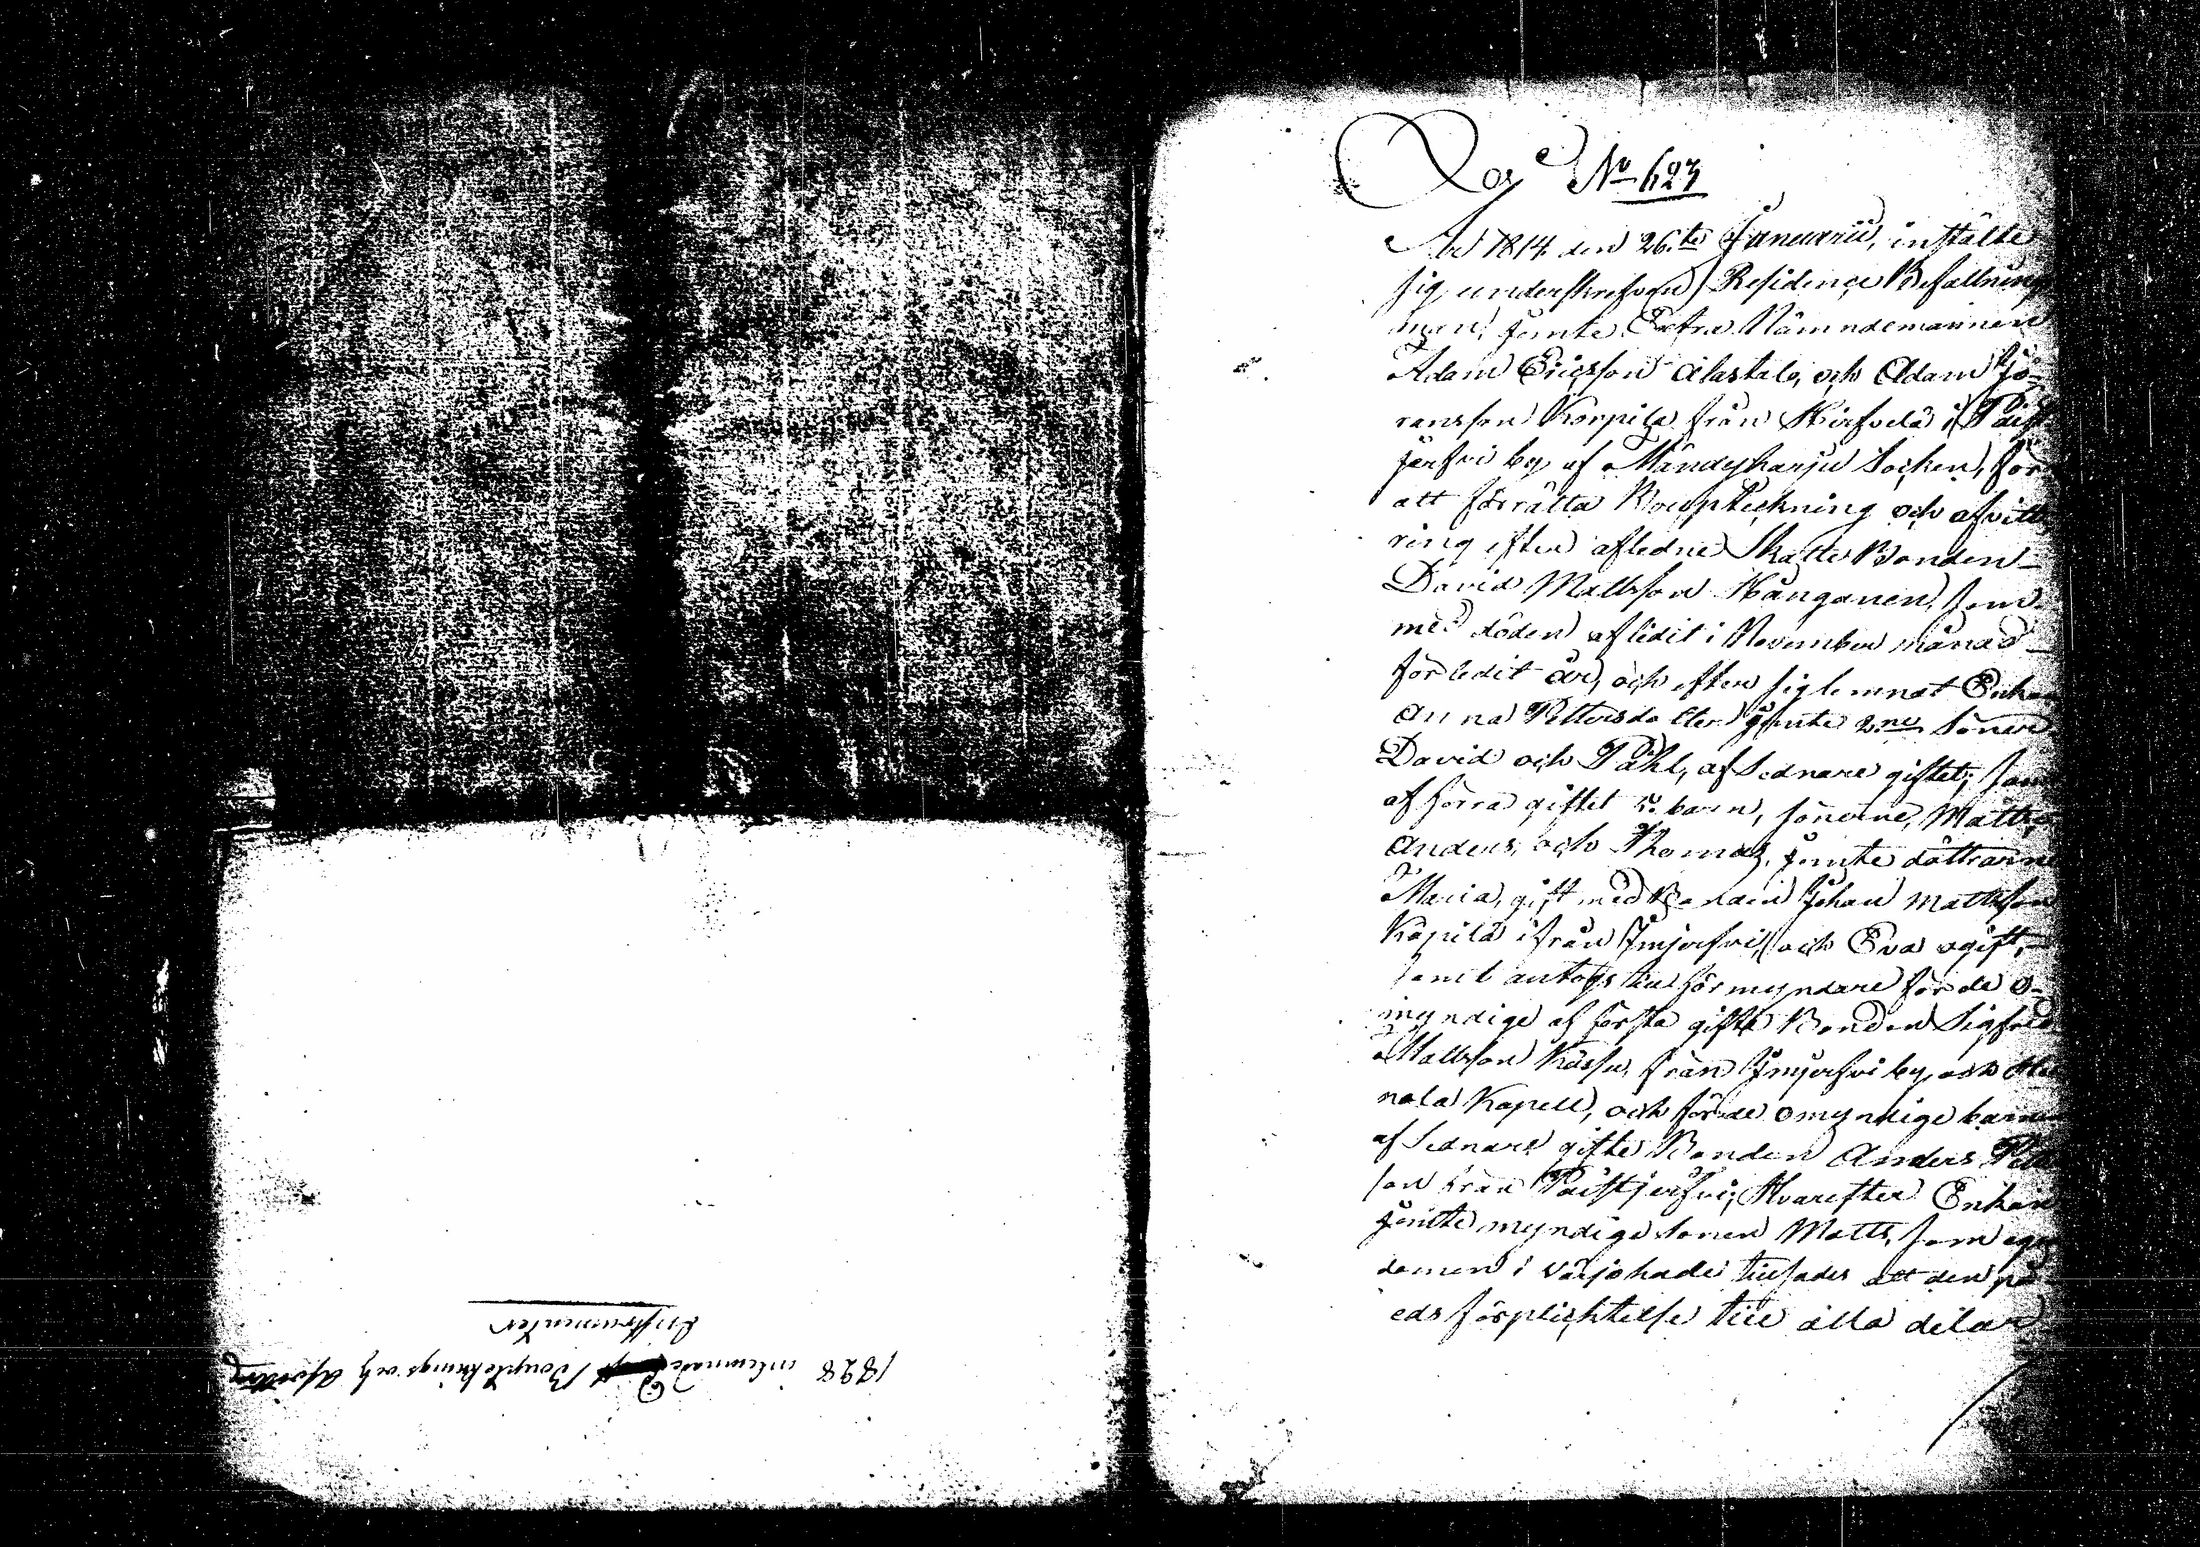 1828 inlemnade Boupteknings och Afvittrings
Instrumenter
No 623
År 1814 den 26te Januarii, instälte
sig underskrefven Residence Befallnings
man, jemte Extra Nämndemännen
Adam Ericsson Alastalo, och Adam Jö-
ransson Korpila från Hirfvelä i Paist
jerfvi by af Mändyharju Socken, för
att förrätta Bouptekning och afvitt-
ring efter afledne Skatte Bonden
David Mattsson Hänganen, som
med döden aflidit i November månad
förledit år, och efter sig lemnat Enkan
Anna Pettersdotter jemte 2ne Söner
David och Påhl, af Sednare giftet, samt
af förra giftet 5. barn, sönerne, Matts,
Anders, och Thomas, jemte döttrarne
Maria, gift med Bonden Johan Mattsson
Käpilä ifrån Imjerfvi, och Eva ogift,
samt antogs till förmyndare för de o-
myndige af första gifte Bonden Sigfred
Mattsson Kässu, från Imjerfvi by och Hei
nola Kapell, och för de omyndige barnen
af Sednare gifte Bonden Anders Pett
son från Paistjerfvi; Hvarefter Enkan
jemte myndige sonen Matts, som egen
domen i värjo hade tillsades att den på
eds förplicktelse till alla delar